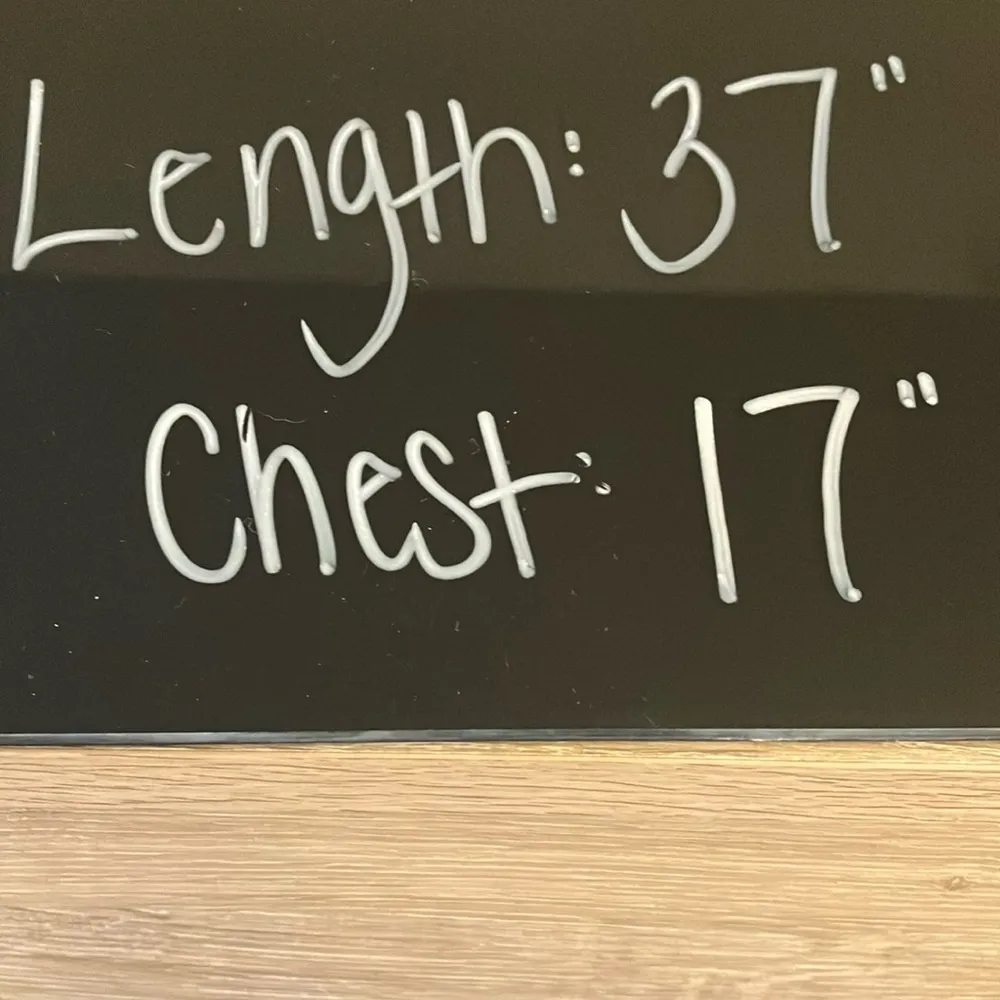 Length: 37"
Chest: 17"